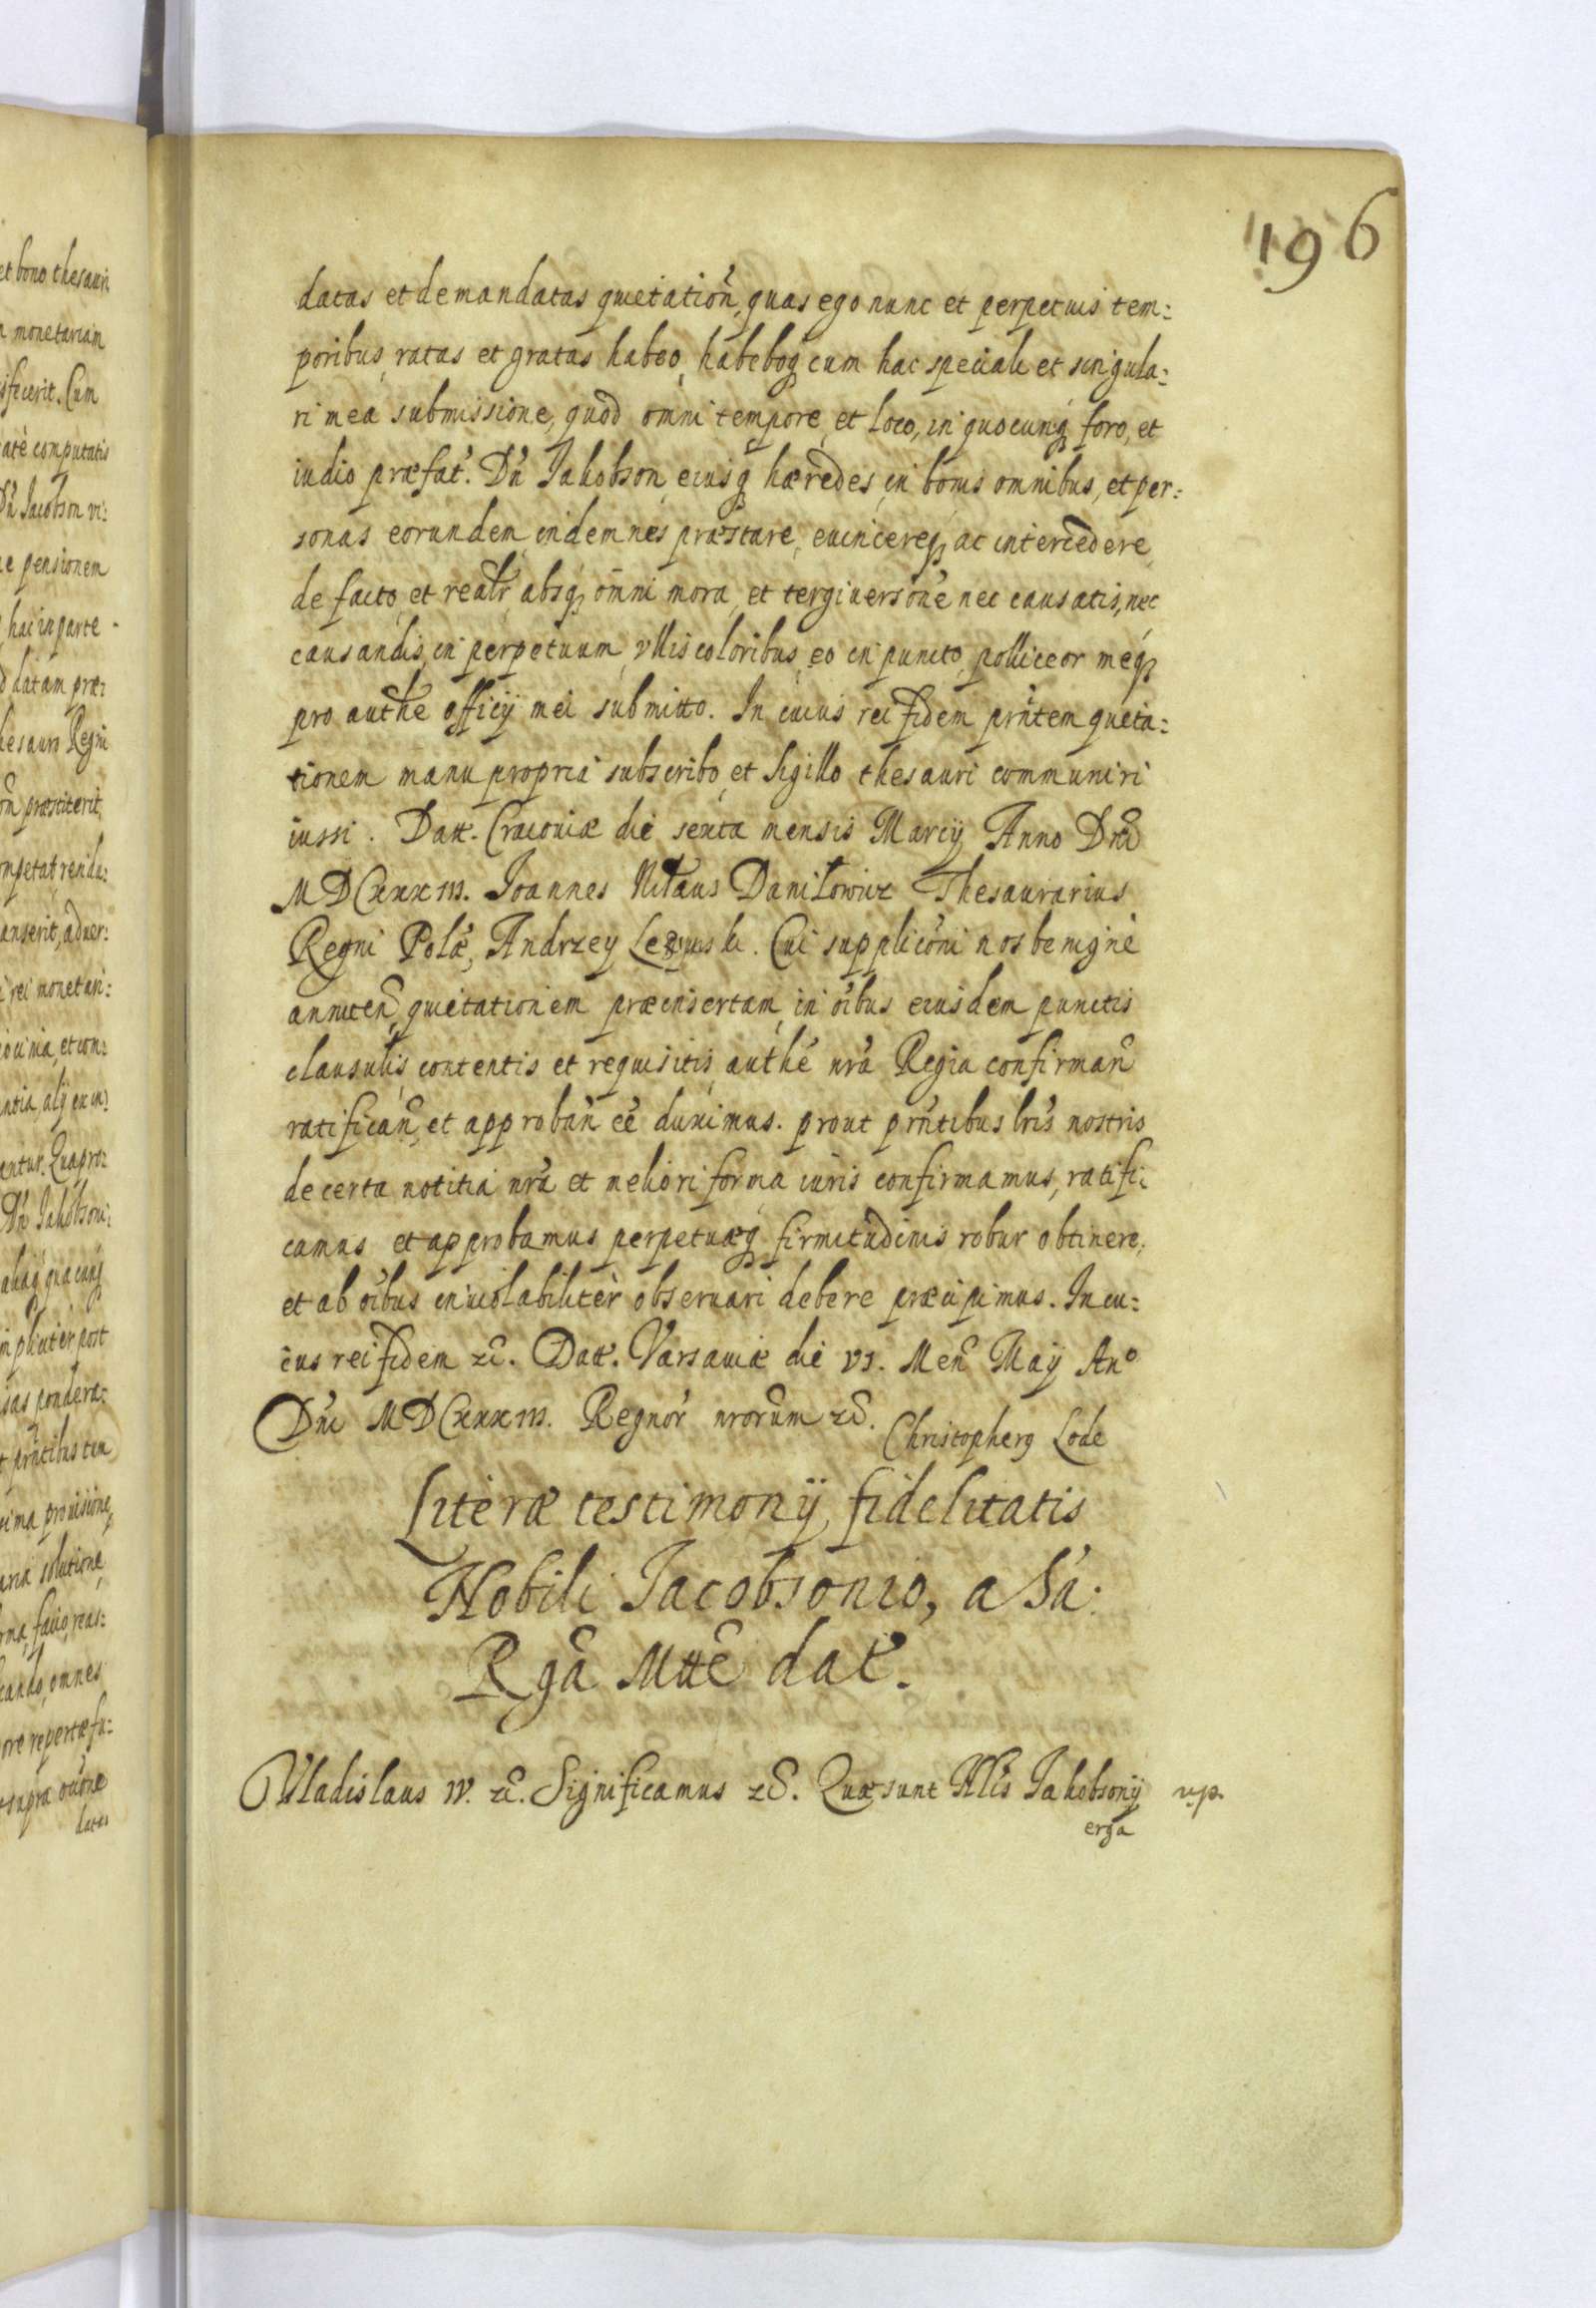 196
datas et demandatas quietatiōn, quas ego nunc et perpetuis tem:
poribus, ratas et gratas habeo, habeboq; cum hac speciali et singula:
ri mea submissione, quod omni tempore et loco, in quocunq; foro, et
iudio præfat'. Dn̄ Jakobson eiusq; hæredes, in bonis omnibus, et per:
sonas eorundem, indemnes præstare, euincereq; ac intercedere
de facto, et realr̄, absq; om̄ni mora, et tergiuersōne nec causatis, nec
causandis, in perpetuum, vllis coloribus, eo in puncto, polliceor méq;
pro authē officij mei submitto. In cuius rei fidem prn̄tem quieta:
tionem manu propria subscribo, et sigillo thesauri communiri
iussi. Datt. Cracoviæ die sexta mensis Marcij Anno Dn̄i
MDCxxxiii. Joannes Nclaus Daniłowicz Thesaurarius
Regni Polæ, Andrzey
. Cui supplicōni nos benignè
annuen̄, quietationem præinsertam, in oībus eiusdem punctis
clausulis, contentis et requisitis, authē nr̄a Regia confirman̄
ratifican̄, et approban̄ eē duximus. prout prn̄tibus lr̄is nostris
de certa notitia nr̄a et meliori forma iuris confirmamus, ratifi:
camus et approbamus perpetuæq; firmitudinis robur obtinere,
et ab oībus inuiolabilitèr obseruari debere præcipimus. In cu:
ius rei fidem &c̄. Datt. Varsauiæ die vi. Men̄ Maij Anº
Dn̄i MDCxxxiii. Regnor' nrorūm &c̄. Christopherꝰ Lode
Literæ testimonij fidelitatis
Nobili Jacobsonio, a Sá:
Rgā Mttē dat'.
Vladislaus IV. &c̄. Significamus &c̄. Quæ sunt Nlis Jakobsonij
erga